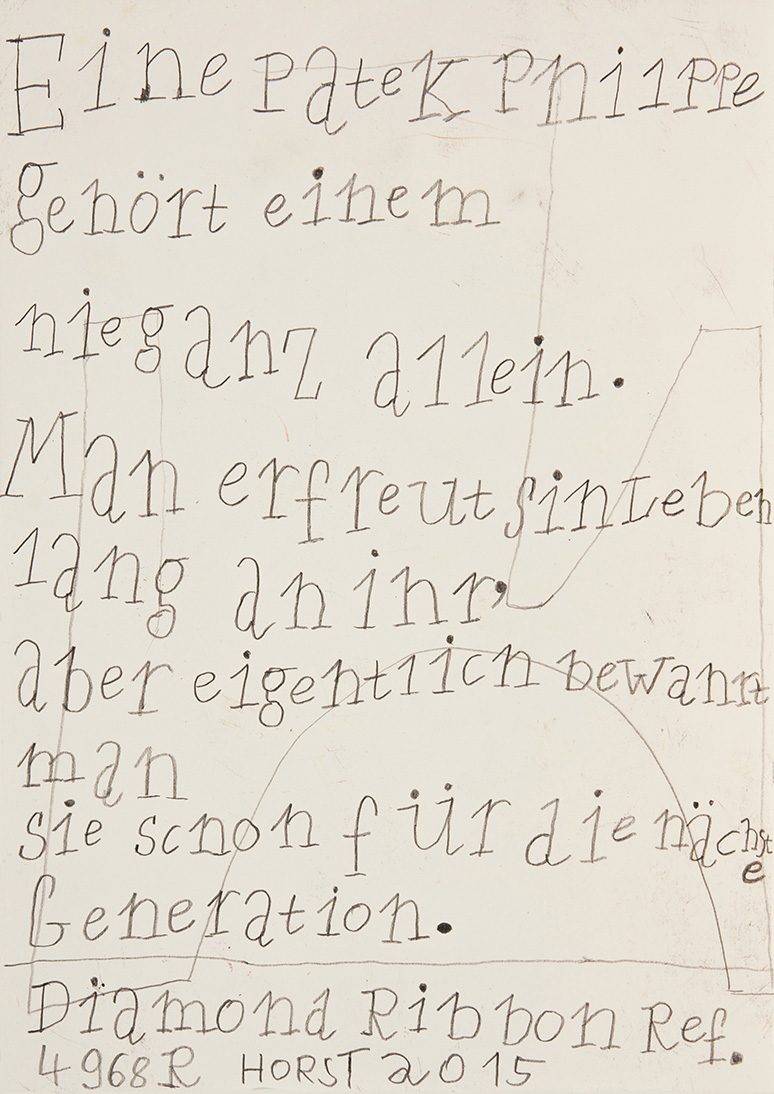 Eine Patek Philippe
gehört einem
nie ganz allein.
Man erfreut sin Leben
lang an ihr,
aber eigentlich bewahnt
man
sie schon für die nächste
Generation.
Diamond Ribbon Ref.
4968R HORST 2015